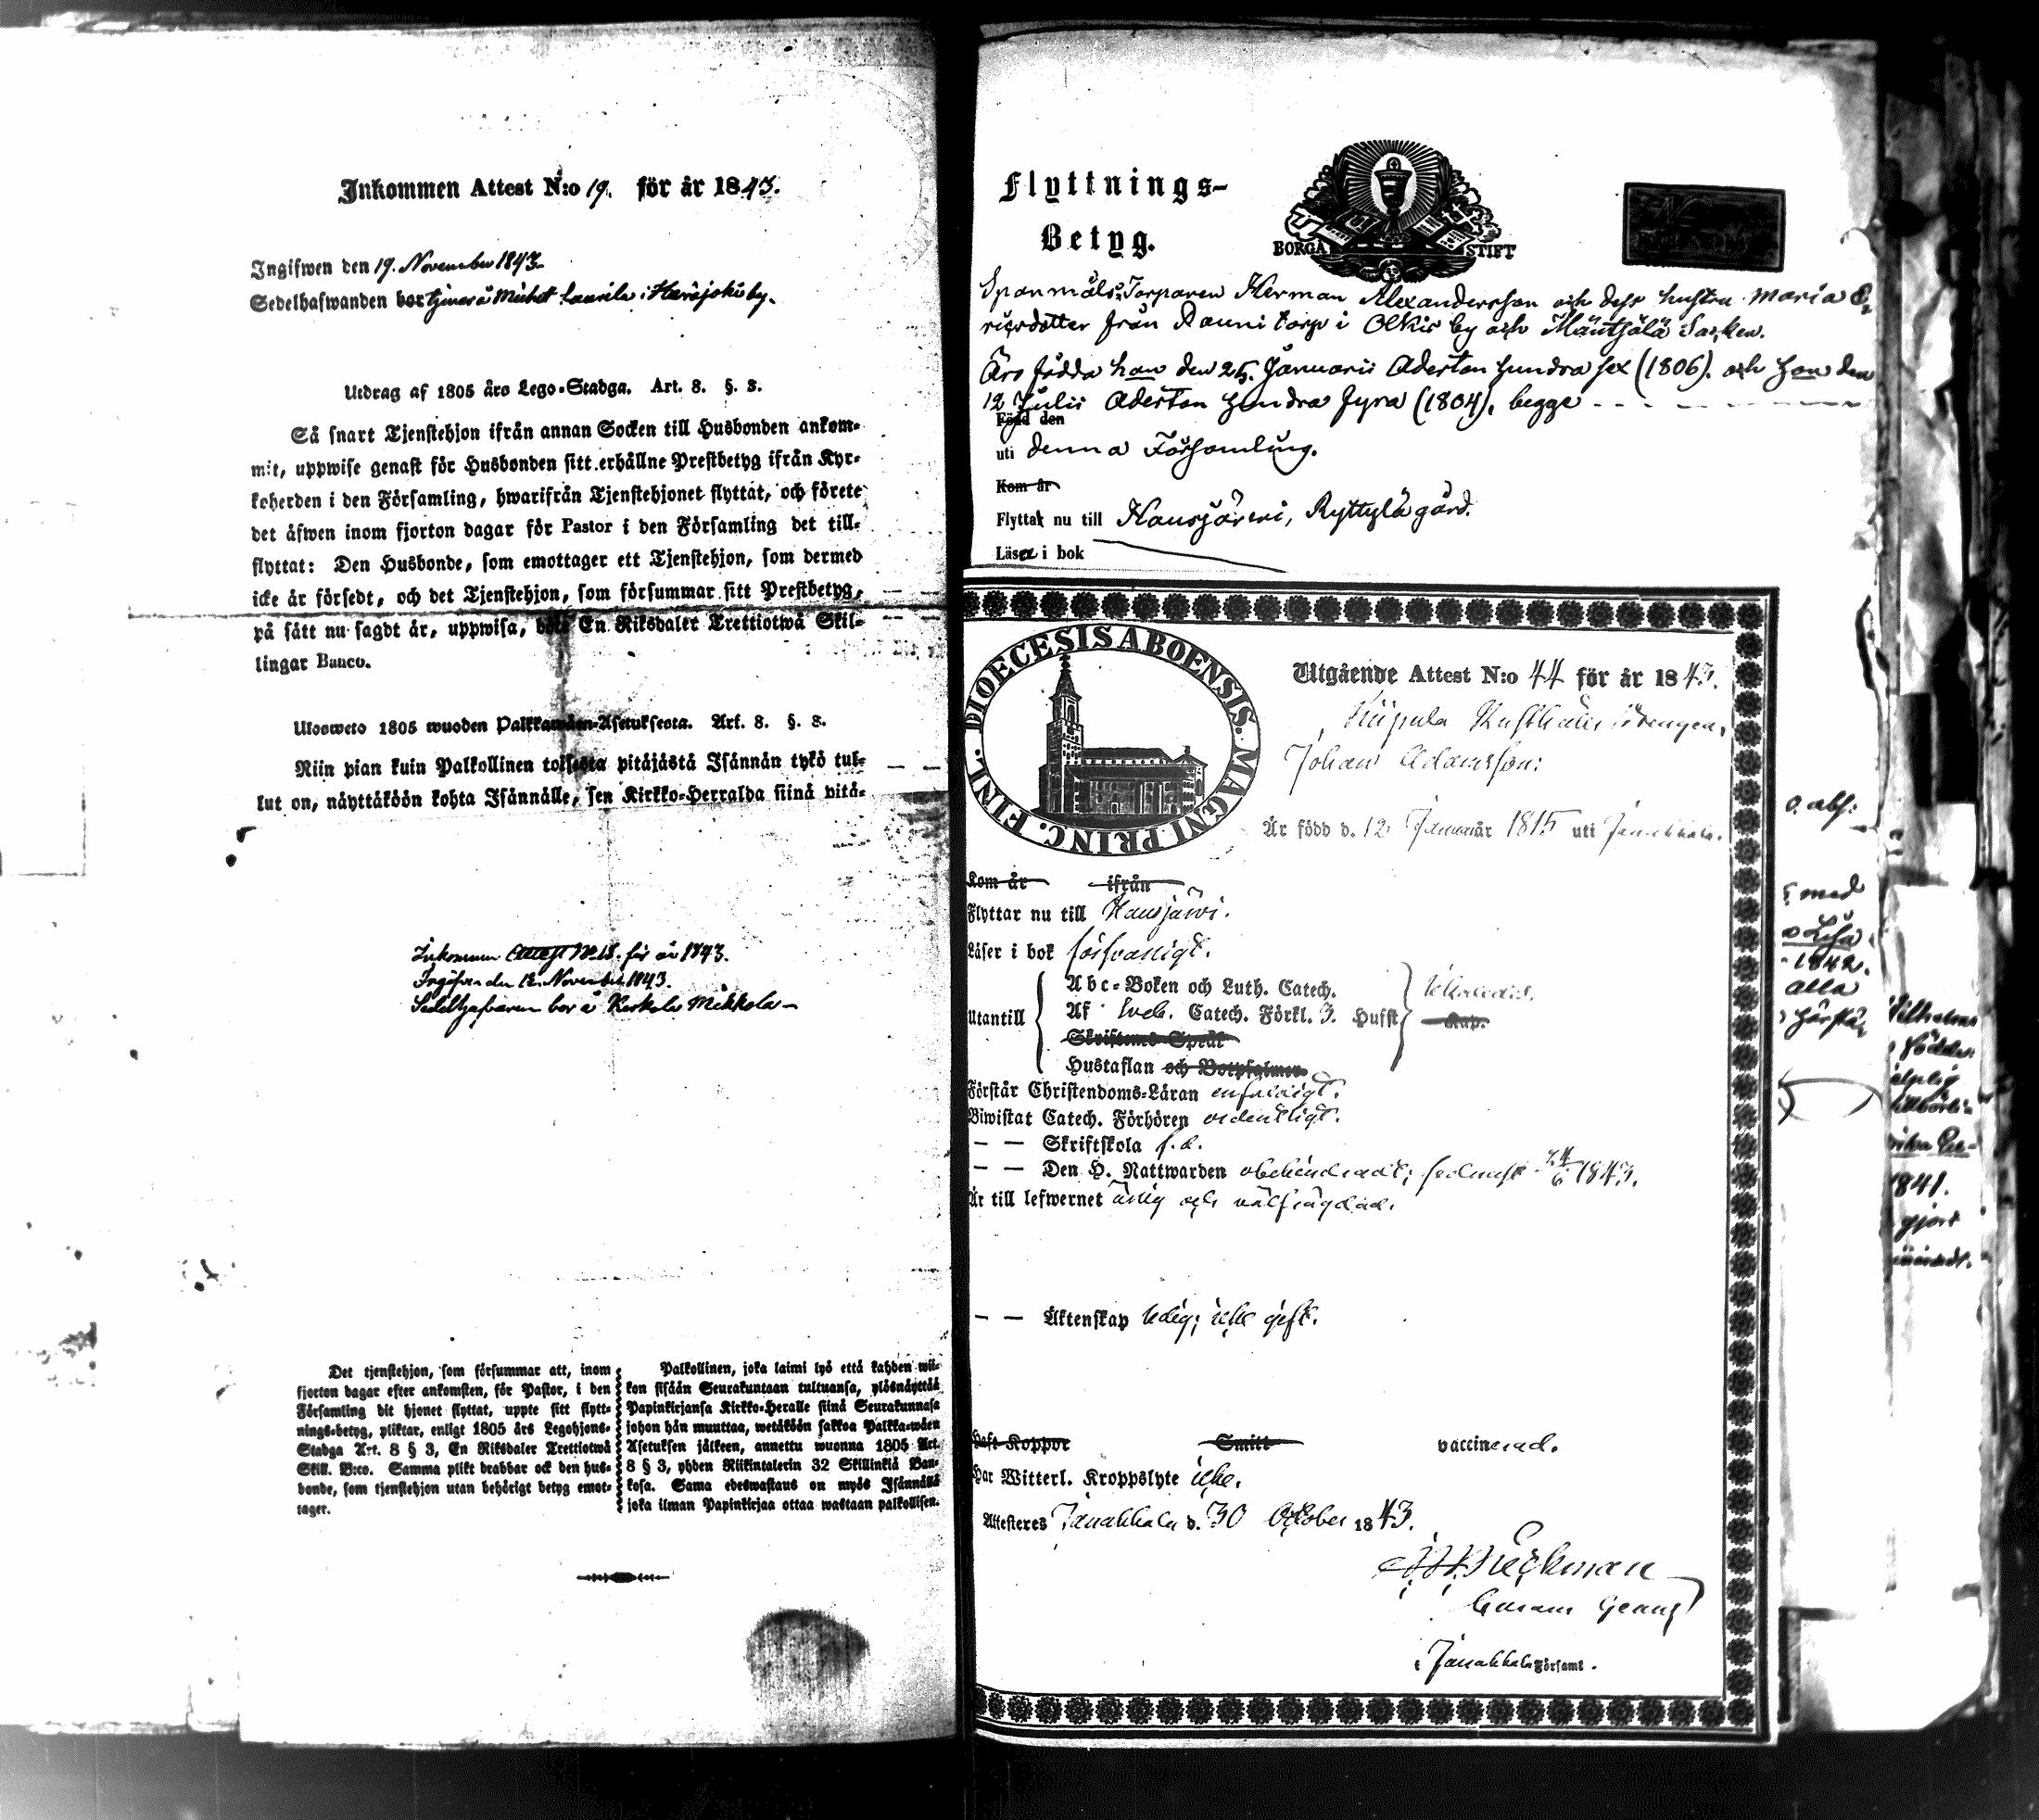 Inkommen Attest N:o 19. för år 1843.
Ingifwen den 19. November 1843.
Sedelhafwanden bor tjenar å Michel Laurila i Herajoki by.
Utdrag af 1805 års Lego-Stadga. Art. 8. §. 3.
Så snart Tjenstehjon ifrån annan Socken till Husbonden ankom-
mit, uppwise genast för Husbonden sitt erhållne Prestbetyg ifrån Kyr-
koherden i den Församling, hwarifrån Tjenstehjonet flyttat, och förete
det äfwen inom fjorton dagar för Pastor i den Församling det till-
flyttat: Den Husbonde, som emottager ett Tjenstehjon, som dermed
icke är försedt, och det Tjenstehjon, som försummar sitt Prestbetyg,
på sätt nu sagdt är, uppwisa, böte En Riksdaler Trettiotwå Skil-
lingar Banco.
Ulosweto 1805 wuoden Palkkawäen-Asetuksesta. Art. 8. §. 3.
Niin pian kuin Palkollinen toisesta pitäjästä Isännän tykö tul-
lut on, näyttäköön kohta Isännälle, sen Kirkko-Herralda siinä pitä-
Inkommen Attest No 18. för år 1843.
Ingifven den 12. November 1843.
Sedelhafvaren bor å Kerkola Mikkola
Det tjenstehjon, som försummar att, inom
fjorton dagar efter ankomsten, för Pastor, i den
Församling dit hjonet flyttat, uppte sitt flytt-
nings-betyg, pliktar, enligt 1805 års Legohjons-
Stadga Art. 8 § 3, En Riksdaler Trettiotwå
Skill. B:co. Samma plikt drabbar ock den hus-
bonde, som tjenstehjon utan behörigt betyg emot-
tager.
Palkollinen, joka laimi lyö että kahden wii-
kon sisään Seurakuntaan tultuansa, ylösnäyttää
Papinkirjansa Kirkko-Heralle siinä Seurakunnasa
johon hän muuttaa, wetäköön sakkoa Palkka-wäen
Asetuksen jälkeen, annettu wuonna 1805 Art.
8 § 3, yhden Riikintalerin 32 Skillinkiä Ban-
kosa. Sama edeswastaus on myös Isännällä
joka ilman Papinkirjaa ottaa wastaan palkollisen.
Flyttnings-
Betyg.
BORGÅ STIFT
Spanmåls Torparen Herman Alexandersson och dess hustru Maria E-
ricsdotter från Rauni torp i Olkis by och Mäntsälä Socken.
Äro födda han den 25. Januarii Aderton hundra sex (1806). och hon den
12 Julii Aderton hundra fyra (1804), begge
Född den
uti denna Församling.
Kom år
Flyttat nu till Hausjärvi, Ryttylä gård.
Läser i bok
DIOECESIS ABOENSIS. MAGNI PRINC. FINL.
Utgående Attest N:o 44 för år 1843.
Johan Adamsson:
Är född d. 12 Januar 1815 uti Janakkala.
Kom år ifrån
Flyttar nu till Hausjärvi.
Läser i bok försvarligt.
Utantill
Abc-Boken och Luth. Catech.
Af Sveb. Catech. Förkl. 3. Hufst
Kap.
Skriftens Språk
Hustaflan och Botpsalmer
Förstår Christendoms-Läran enfaldigt.
Biwistat Catech. Förhören ordentligt.
— — Skriftskola f. d.
— — Den H. Nattwarden obehindradt; sednast 24/6 1843.
Är till lefwernet ärlig och välfrägdad.
— — Äktenskap ledig; icke gift.
Haft Koppor Smitt vaccinerad.
Har Witterl. Kroppslyte icke.
Attesteres Janakkala d. 30 October 1843.
i Janakkala Församl.
o. abs:
med
1842.
alla
Wilhelms
födde
1841.
gjort